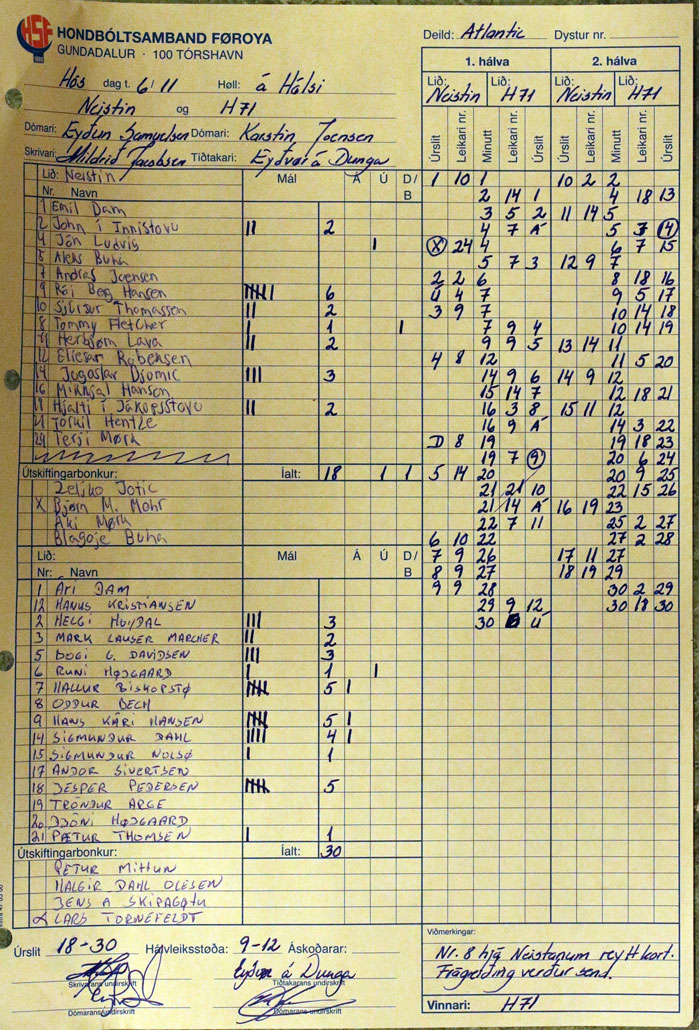 HSF HONDBÓLTSAMBAND FØROYA
GUNDADALUR · 100 TÓRSHAVN
Deild: Atlantic Dystur nr.
Hós dag t. 6/11 Høll: á Hálsi
Neistin og H71
Dómari: Eyðun Samuelsen Dómari: Karstin Joensen
Skrivari: Mildrid Jacobsen Tíðtakari: Eyðvør á Dunga
1. hálva 2. hálva
Lið: Neistin Lið: H71 Lið: Neistin Lið: H71
Úrslit Leikari nr. Minutt Leikari nr. Úrslit Úrslit Leikari nr. Minutt Leikari nr. Úrslit
1 10 1 10 2 2
2 14 1 4 18 13
3 5 2 11 14 5
4 7 Á 5 7 14
X 24 4 6 7 15
5 7 3 12 9 7
2 2 6 8 18 16
Ú 4 7 9 5 17
3 9 7 10 14 18
7 9 4 10 14 19
9 9 5 13 14 11
4 8 12 11 5 20
14 9 6 14 9 12
15 14 7 12 18 21
16 3 8 15 11 12
16 9 Á 14 3 22
D 8 19 19 18 23
19 7 9 20 6 24
5 14 20 20 9 25
21 21 10 22 15 26
21 14 Á 16 19 23
22 7 11 25 2 27
6 10 22 27 2 28
7 9 26 17 11 27
8 9 27 18 19 29
9 9 28 30 2 29
29 9 12 30 18 30
30 Ú
Lið: Neistin Mál Á Ú D/B
Nr. Navn
1 Emil Dam
2 John í Innistovu II 2
4 Jón Ludvig I
5 Aleks Buha
7 Andras Joensen
9 Rói Berg Hansen 6
10 Sjúrður Thomassen II 2
8 Tommy Fletcher I 1 I
11 Herbjørn Lava II 2
12 Eliesar Robensen
14 Jogoslav Djumic III 3
16 Mikkjal Hansen
19 Hjalti í Jákupsstovu II 2
21 Torkil Hentze
24 Terji Mørk
Útskiftingarbonkur: Íalt: 18 1 1
Zeljko Jotic
X Bjørn M. Mohr
Áki Mørk
Blagoje Buha
Lið: Mál Á Ú D/B
Nr: Navn
1 ÁRI DAM
12 HANUS KRISTIANSEN
2 HELGI HOYDAL III 3
3 MARK LAUSER MARCHER II 2
5 BOGI G. DAVIDSEN III 3
6 RUNI HØJGAARD I 1 I
7 HALLUR BISKOPSTØ 5 I
8 ODDUR BECH
9 HANS KÁRI HANSEN 5 I
14 SIGMUNDUR DAHL IIII 4 I
15 SIGMUNDUR NOLSØ I 1
17 ANDOR SIVERTSEN
18 JESPER PEDERSEN 5
19 TRÓNDUR ARGE
20 JÓNI HØJGAARD
21 PÆTUR THOMSEN I 1
Útskiftingarbonkur: Íalt: 30
PETUR MITTUN
HALGIR DAHL OLESEN
JENS A SKIPAGØTU
X LARS TORNEFELDT
Úrslit 18-30 Hálvleiksstøða: 9-12 Áskoðarar:
Eyðvør á Dunga
Skrivarans undirskrift Tíðtakarans undirskrift
Dómarans undirskrift Dómarans undirskrift
Viðmerkingar:
Nr. 8 hjá Neistanum reytt kort.
Frágreiðing verður send.
Vinnari: H71